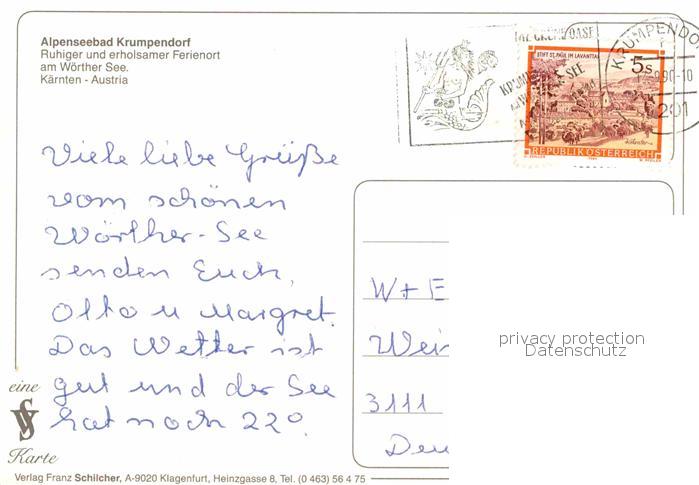 Alpenseebad Krumpendorf
Ruhiger und erholsamer Ferienort
am Wörther See.
Kärnten - Austria
Viele liebe Grüße
vom schönen
Wörther-See
senden Euch,
Otto u Margret.
Das Wetter ist
gut und der See
hat noch 22°.
eine
Karte
Verlag Franz Schilcher, A-9020 Klagenfurt, Heinzgasse 8, Tel. (0 463) 56 4 75
KRUMPENDO
90-10
201
STIFT ST. PAUL IM LAVANTTAL
5s
REPUBLIK ÖSTERREICH
W + E
Wei
3111
Deu
privacy protection
Datenschutz